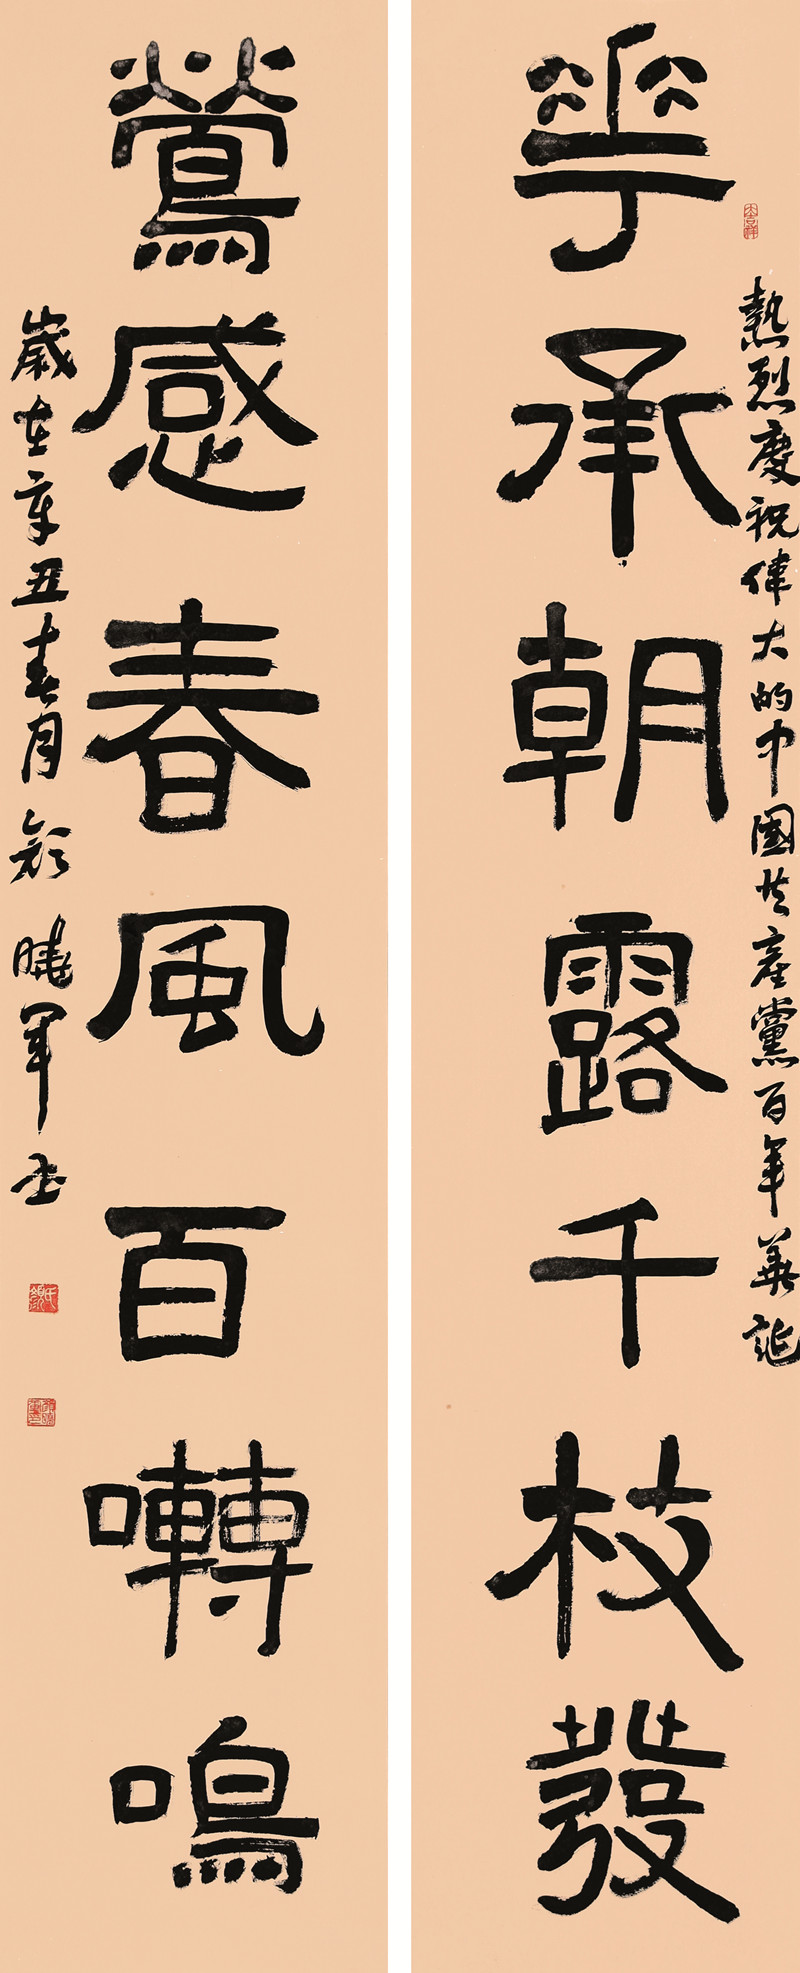 熱烈慶祝偉大的中國共產黨百年華誕
華承朝露千枝發
鶯感春風百囀鳴
歲在辛丑春月顏曉軍書